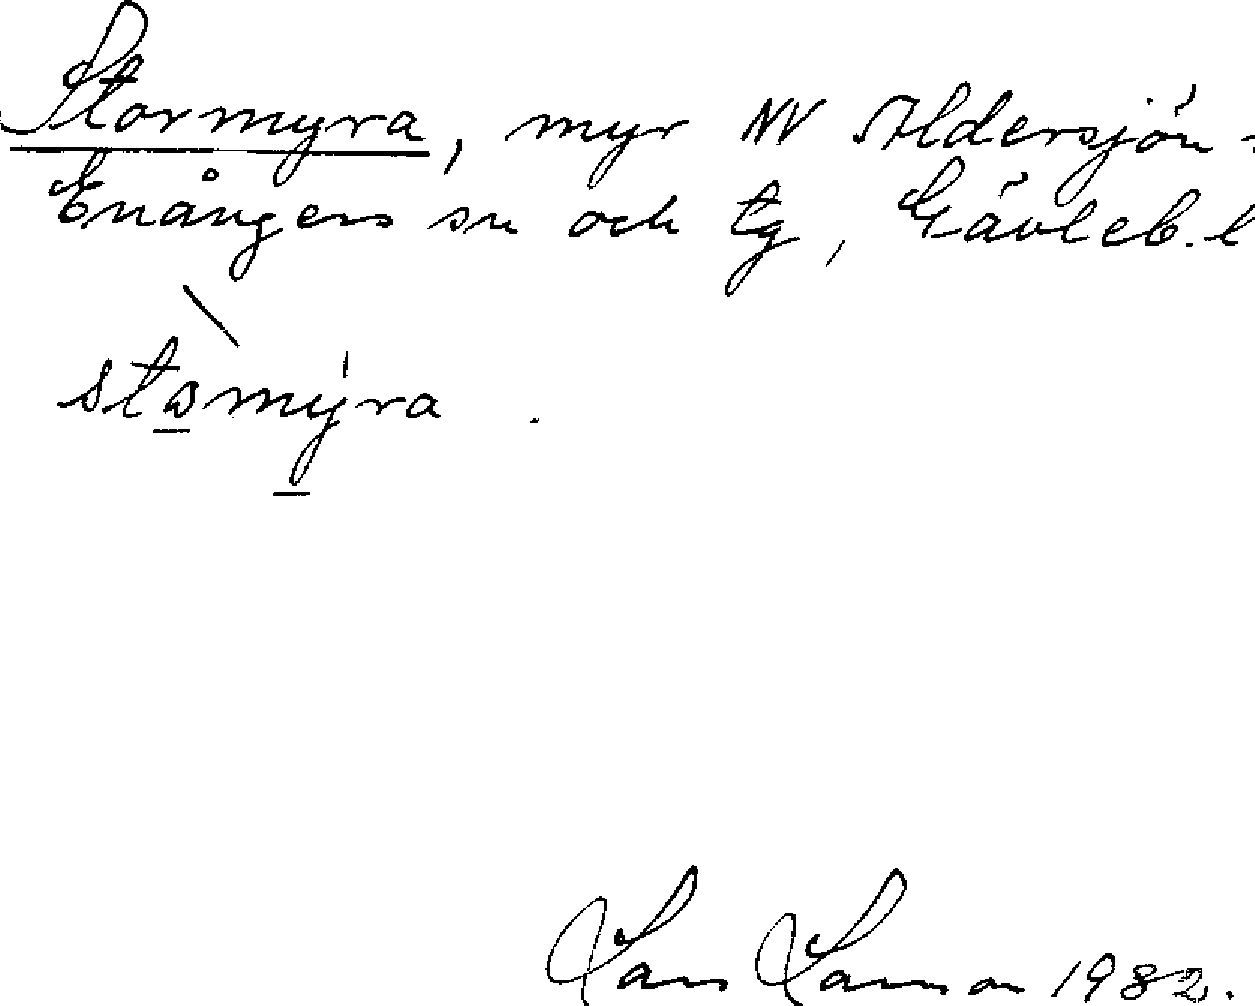 Stormyra, myr NV Åldersjön -
Enångers sn och tg, Gävleb. l
stɷmýra .
Lars Larsson 1982.